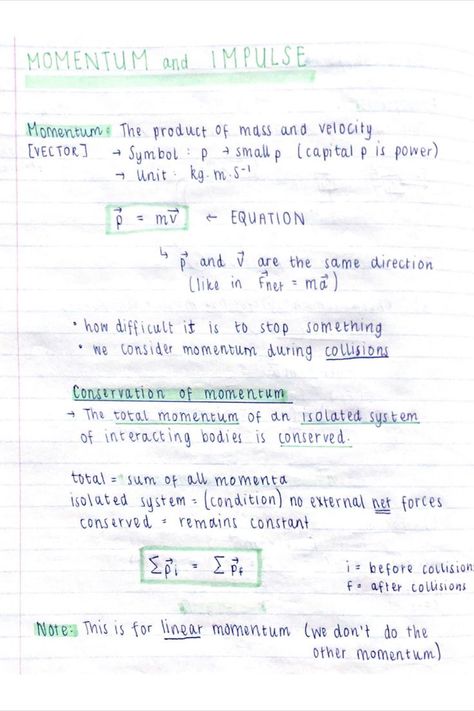 MOMENTUM and IMPULSE
Momentum: The product of mass and velocity
[VECTOR] → Symbol: p → small p (capital p is power)
→ Unit: kg.m.s⁻¹
p⃗ = mv⃗ ← EQUATION
↳ p⃗ and v⃗ are the same direction
(like in F⃗net = ma⃗)
• how difficult it is to stop something
• we consider momentum during collisions
Conservation of momentum
→ The total momentum of an isolated system
of interacting bodies is conserved.
total = sum of all momenta
isolated system = (condition) no external net forces
conserved = remains constant
Σp⃗i = Σp⃗f
i = before collision
f = after collisions
Note: This is for linear momentum (we don't do the
other momentum)